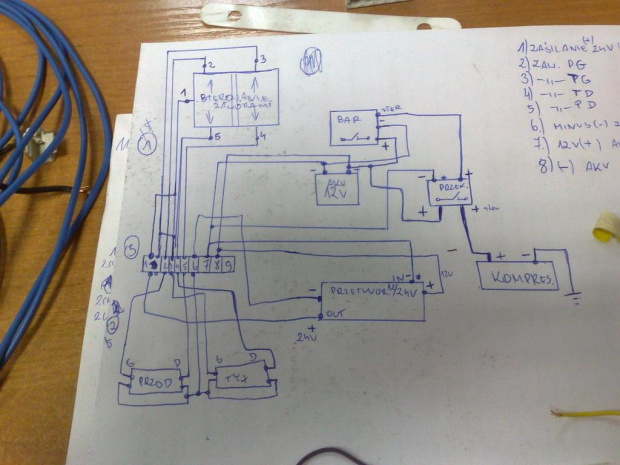 1) ZASILANIE (+) 24V
2) ZAW. PG
3) -||- TG
4) -||- TD
5) -||- PD
6.) MINUS (-) 2
7.) 12V (+) A
8) (-) AKU
2 3
1
STEROWANIE
ZAWORAMI
5 4
BAR
STER
-
+
- +
AKU
12V
- +
PRZEK.
+ +
- + -
KOMPRES.
1 2 3 4 5 6 7 8 9
IN - +
12V
- PRZETWOR. 12/24V +
OUT
+
24V
G D
PRZÓD
G D
TYŁ